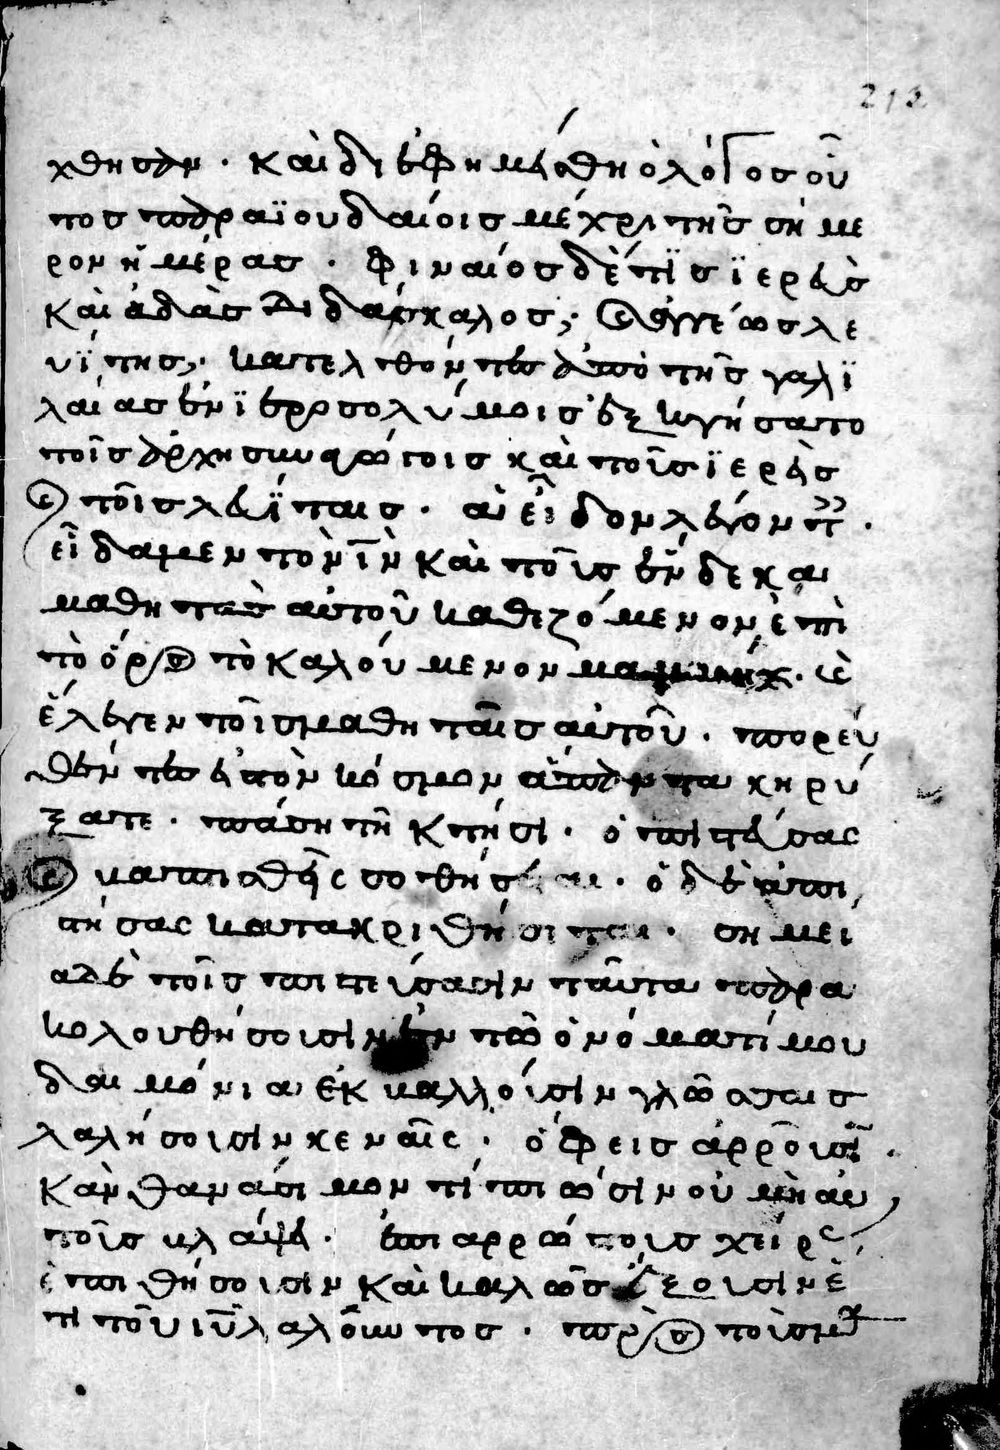 213
χθησαν · καὶ διεφημίσθη ὁ λόγος οὗ
τος παρα ϊουδαίοις μέχρι τῆς σήμε
ρον ἡμέρας · φιναίος δέ τϊς ϊερεὺς
καὶ ἀδὰς διδάσκαλος, καὶ ἀγγέως λε
υϊ της, κατελθόντες ἀπὸ τῆς γαλϊ
λαίας ἐν ϊεροσολύμοις ἐξηγήσατο
τοῖς ἀρχησυναγώγοις καὶ τοῖς ϊερεῦς
καὶ τοῖς λευΐταις · ἃ εἶδον λέγοντες ·
εἴδαμεν τὸν ἰν καὶ τοῖς ἕνδεκα
μαθητὰς αὐτοῦ καθεζόμενον ἐπὶ
τὸ ὄρος τὸ καλούμενον · καὶ
ἔλεγεν τοῖς μαθηταῖς αὐτοῦ · πορευ
θέντες εἰς τὸν κόσμον ἅπαντα κηρύ
ξατε · πάση τῆ κτήσι · ὁ πιστεύσας
καὶ βαπτισθεὶς σοθήσεται · ὁ δὲ ἀπισ
τήσας κατακριθήσιται · σημεί
α δὲ τοῖς πιστεύσασιν ταῦτα παρα
κολουθήσουσιν ἐν τῶ ὀνόματί μου
δαιμόνια ἐκβαλλούσιν γλώσσαις
λαλήσουσιν κεναῖς · ὄφεις ἀρροῦσιν ·
κἂν θανάσιμον τί πιωσιν οὐ μὴ αὐ
τοῖς βλάψει · ἐπι αρρώστους χείρας
ἐπιθήσουσιν καὶ καλῶς ἕξουσιν ἐ
τι τοῦ ιῦ λαλοῦντος · πρὸς τοὺς μαθ